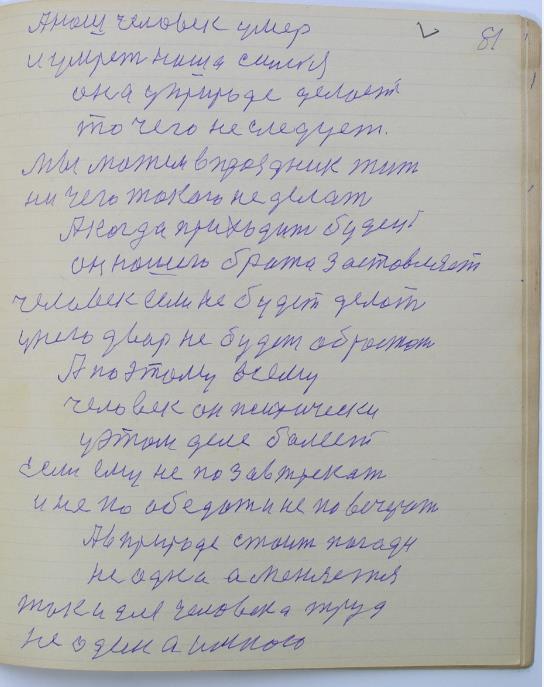 81
А наш человек умер
и умрет наша семья
она у природе делает
то чего не следует.
мы можем в праздник жит
ни чего такого не делат
А когда приходит будену
он нашего брата заставляет
человек если не будет делат
у него двар не будет обростат
А поэтому всему
человек он психически
у этом деле балеет
если ему не позавтрекат
и не по обедат и не по вечерат
А в природе стоит погади
не одна а меняется
так и для человека труд
не один а много